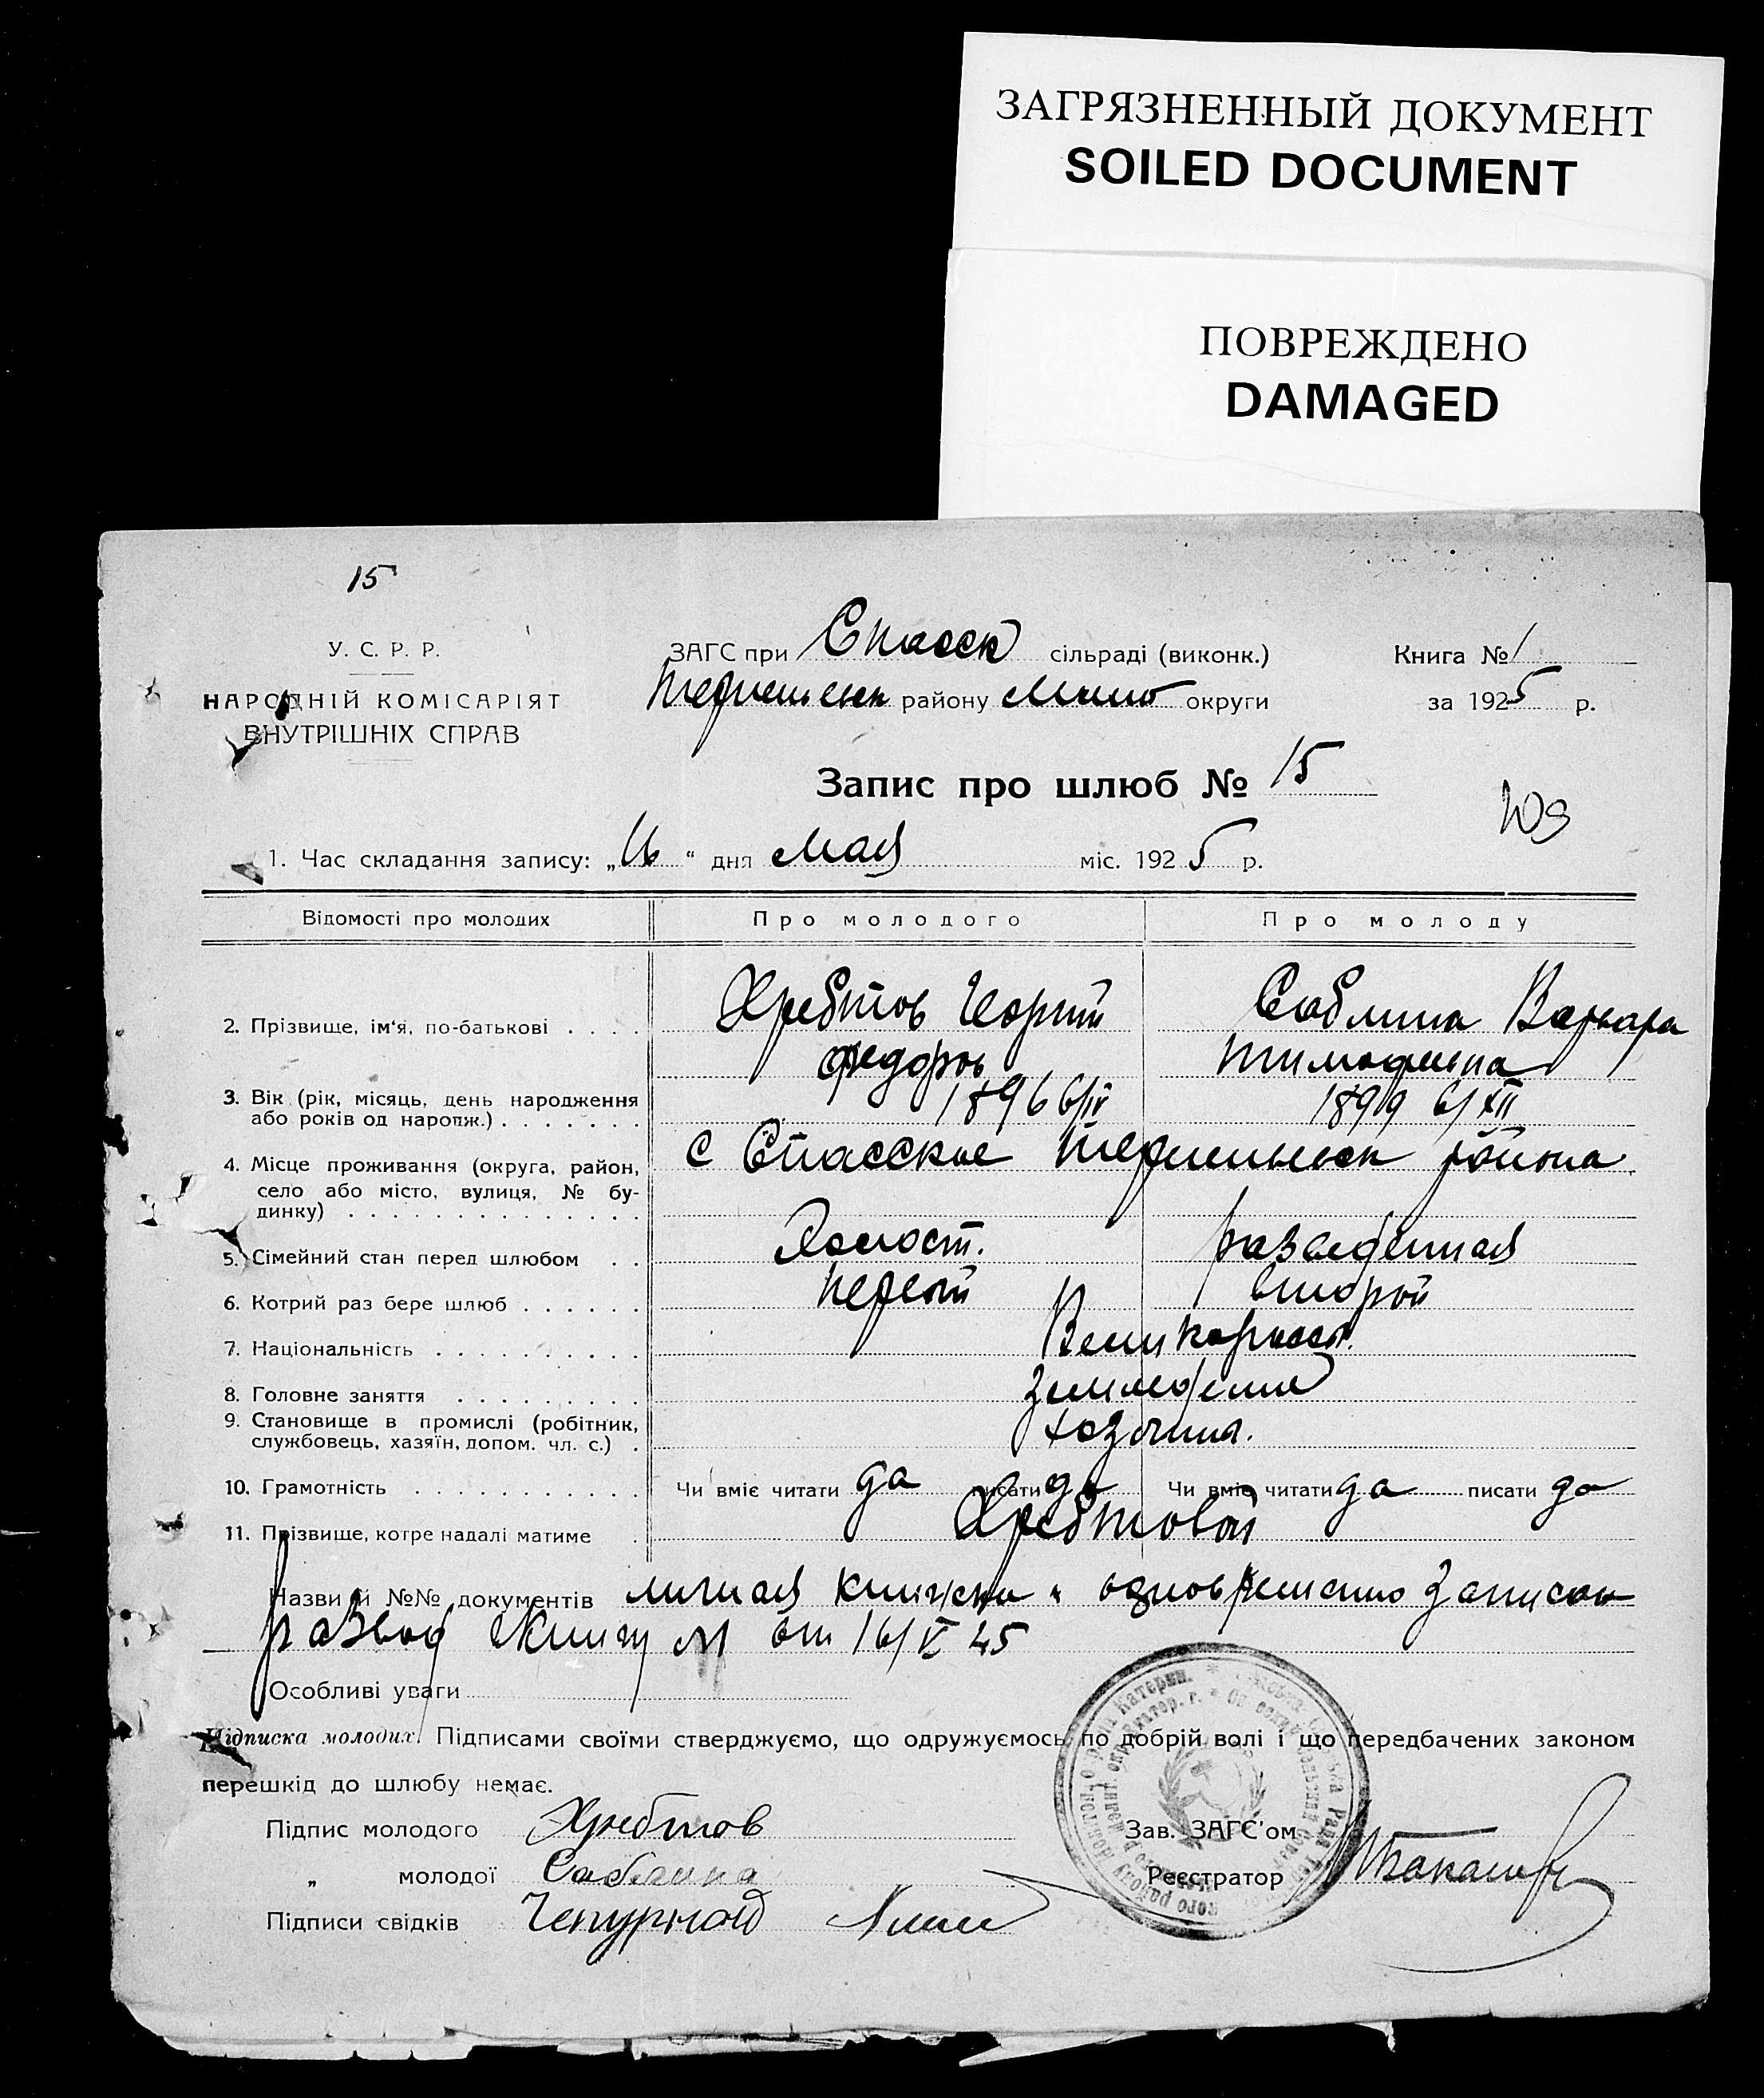 ЗАГРЯЗНЕННЫЙ ДОКУМЕНТ
SOILED DOCUMENT
ПОВРЕЖДЕНО
DAMAGED
15
У. С. Р. Р.
НАРОДНІЙ КОМІСАРІЯТ
ВНУТРІШНІХ СПРАВ
ЗАГС при Спасск сільраді (виконк.)
району округи
Книга № 1
за 1925 р.
Запис про шлюб № 15
109
1. Час складання запису: „16“ дня Мая міс. 1925 р.
Відомості про молодих Про молодого Про молоду
2. Прізвище, ім'я, по-батькові . . . . Хребтов Георгий Саблина Варвара
Федоров Тимофеевна
3. Вік (рік, місяць, день народження 1896 6/IV 1899 6/XII
або років од народж.) . . . . . . .
4. Місце проживання (округа, район, с Спасское района
село або місто, вулиця, № бу-
динку) . . . . . . . . . . . . . .
5. Сімейний стан перед шлюбом . . Холост. разведенная
6. Котрий раз бере шлюб . . . . . . первый второй
7. Національність . . . . . . . . . . Великоросс.
8. Головне заняття . . . . . . . . . земледелие
9. Становище в промислі (робітник,
службовець, хазяїн, допом. чл. с.) . хозяина.
10. Грамотність . . . . . . . . . . . Чи вміє читати да писати да Чи вміє читати да писати да
11. Прізвище, котре надалі матиме . Хребтовой
Назви й №№ документів личная книжка и одновременно записан
развод от 16/V 25
Особливі уваги
Підписка молодих. Підписами своїми стверджуємо, що одружуємось по добрій волі і що передбачених законом
перешкід до шлюбу немає.
Підпис молодого Хребтов
„ молодої Саблина
Підписи свідків Чепурной
Зав. ЗАГС'ом
Реєстратор